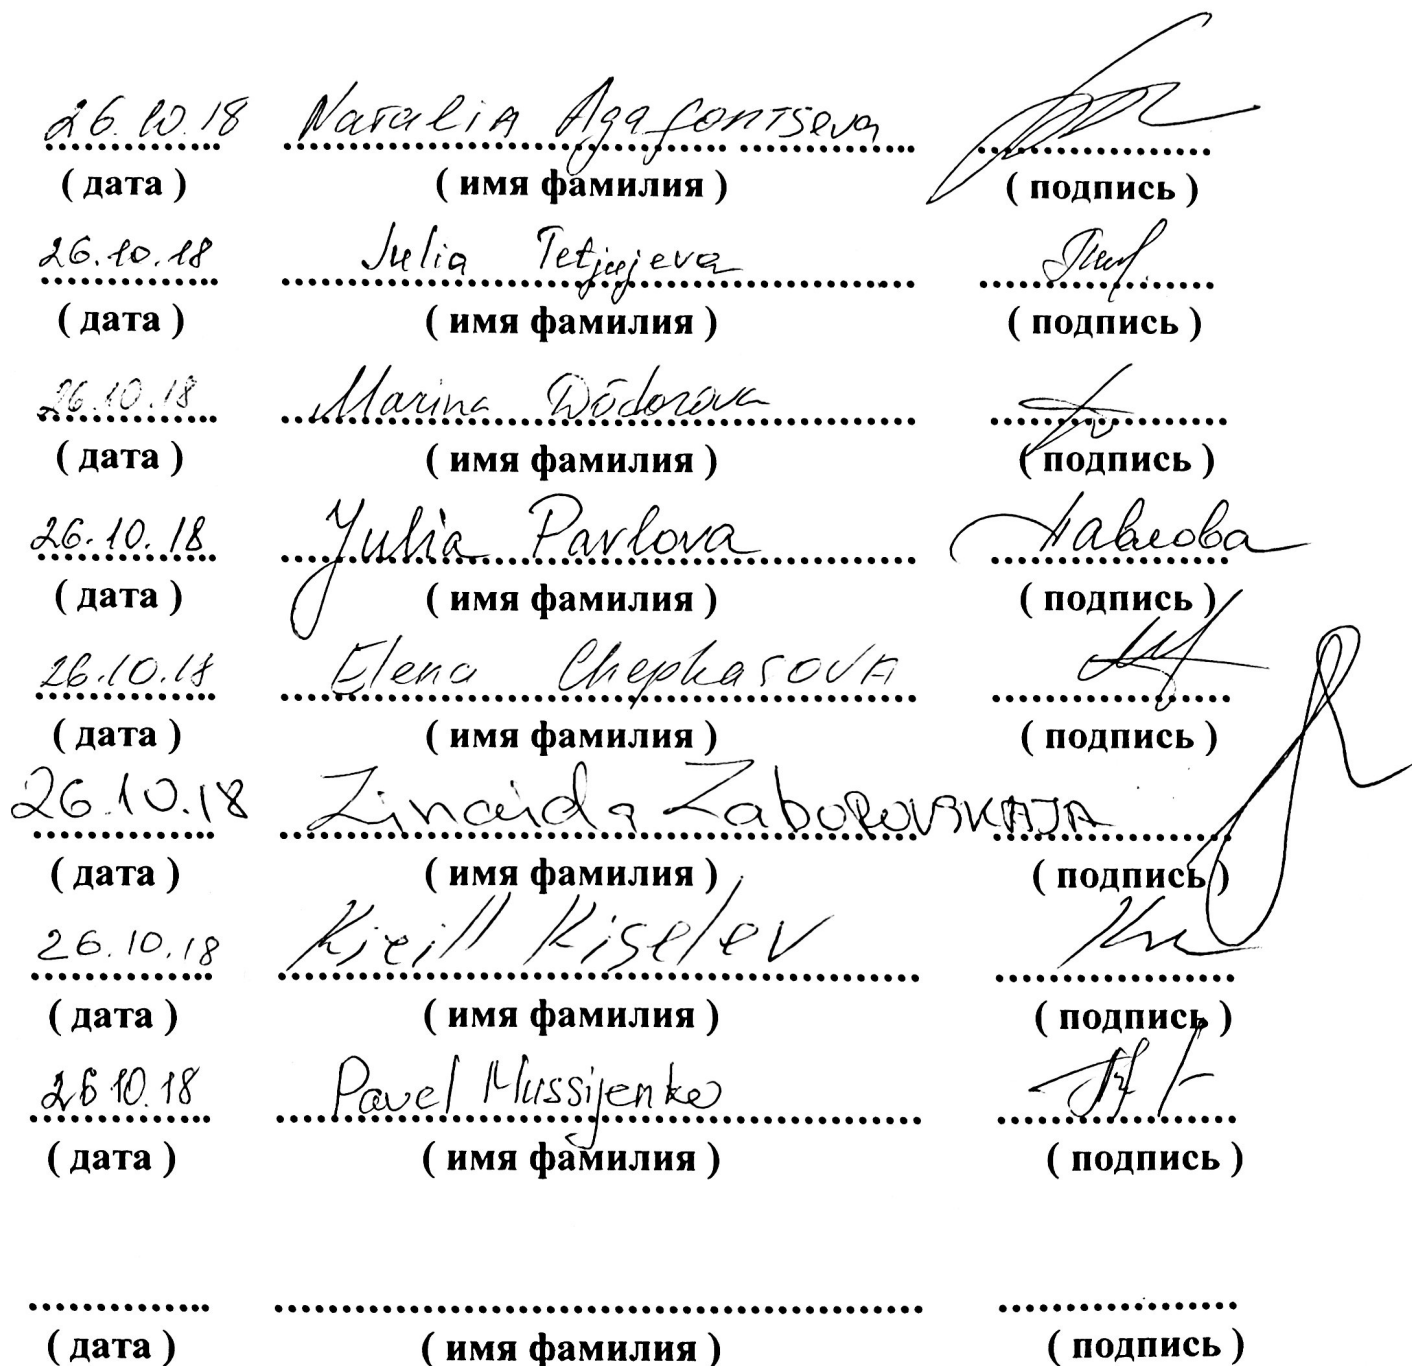 26.10.18 Natalia Agafontseva
( дата ) ( имя фамилия ) ( подпись )
26.10.18 Julia Tetjujeva
( дата ) ( имя фамилия ) ( подпись )
26.10.18 Marina
( дата ) ( имя фамилия ) ( подпись )
26.10.18 Julia Pavlova Павлова
( дата ) ( имя фамилия ) ( подпись )
26.10.18 Elena Chepkasova
( дата ) ( имя фамилия ) ( подпись )
26.10.18 Zinaida ZaboROVSKAJA
( дата ) ( имя фамилия ) ( подпись )
26.10.18 Kirill Kiselev
( дата ) ( имя фамилия ) ( подпись )
26 10.18 Pavel Mussijenko
( дата ) ( имя фамилия ) ( подпись )
( дата ) ( имя фамилия ) ( подпись )